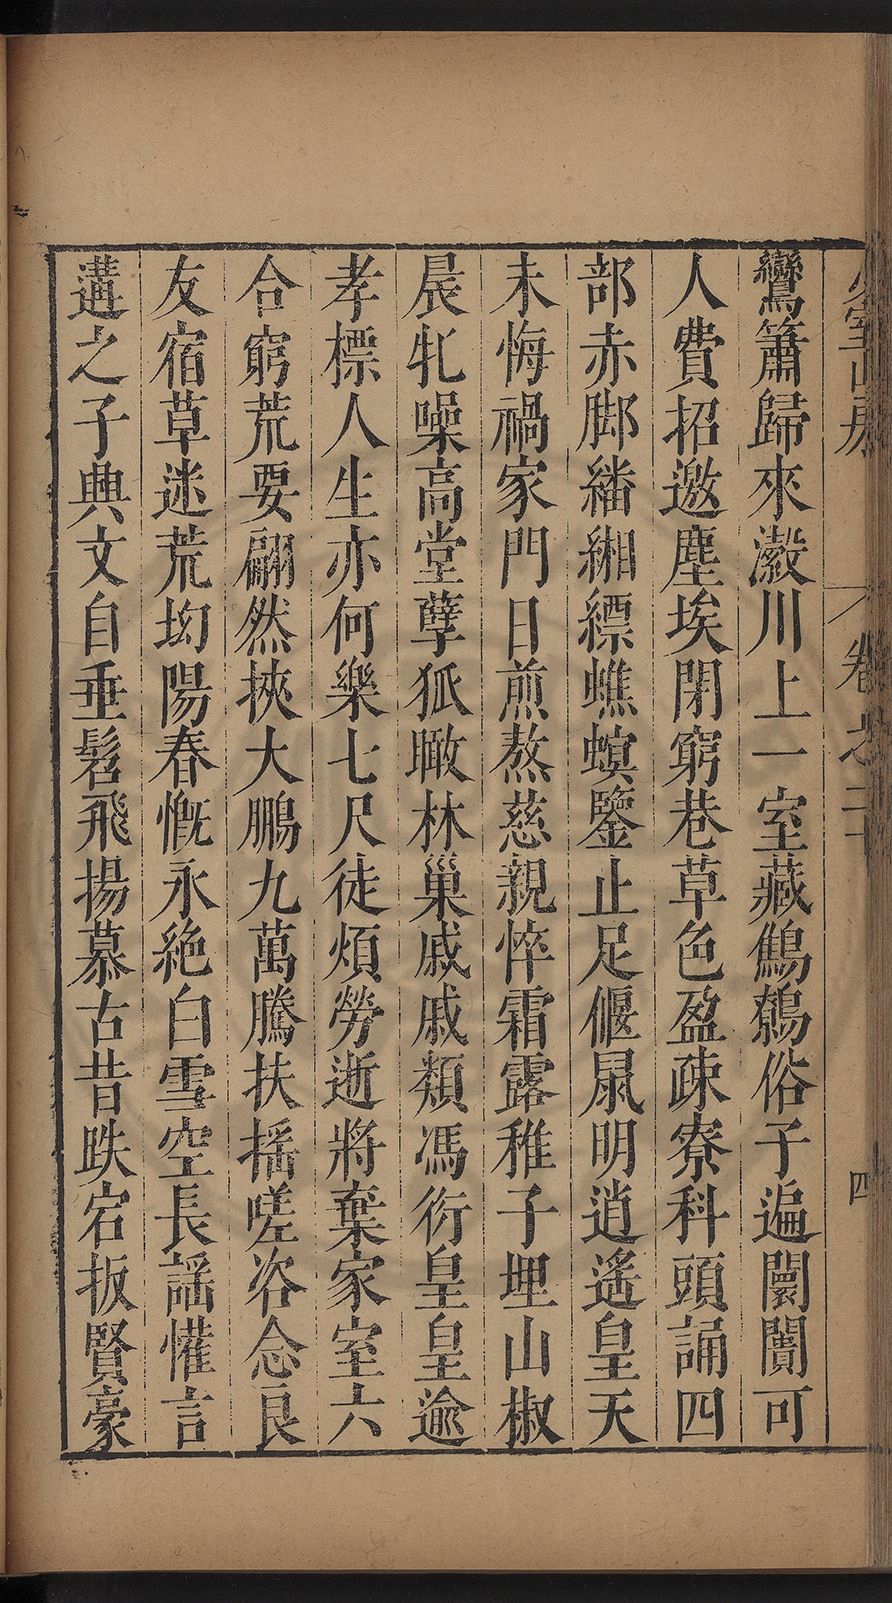 卷之二十
四
鸞簫歸來瀫川上一室藏鷦鷯俗子遍闤闠可
人費招邀塵埃閉窮巷草色盈疎寮科頭誦四
部赤脚繙緗縹蟭螟鑒止足偃鼠明逍遙皇天
未悔禍家門日煎熬慈親悴霜露稚子埋山椒
晨牝噪高堂孽狐瞰林巢戚戚類馮衍皇皇逾
孝標人生亦何樂七尺徒煩勞逝將棄家室六
合窮荒要翩然挾大鵬九萬騰扶搖嗟咨念良
友宿草迷荒坳陽春慨永絶白雪空長謠懽言
遘之子典文自垂髫飛揚慕古昔跌宕扳賢豪